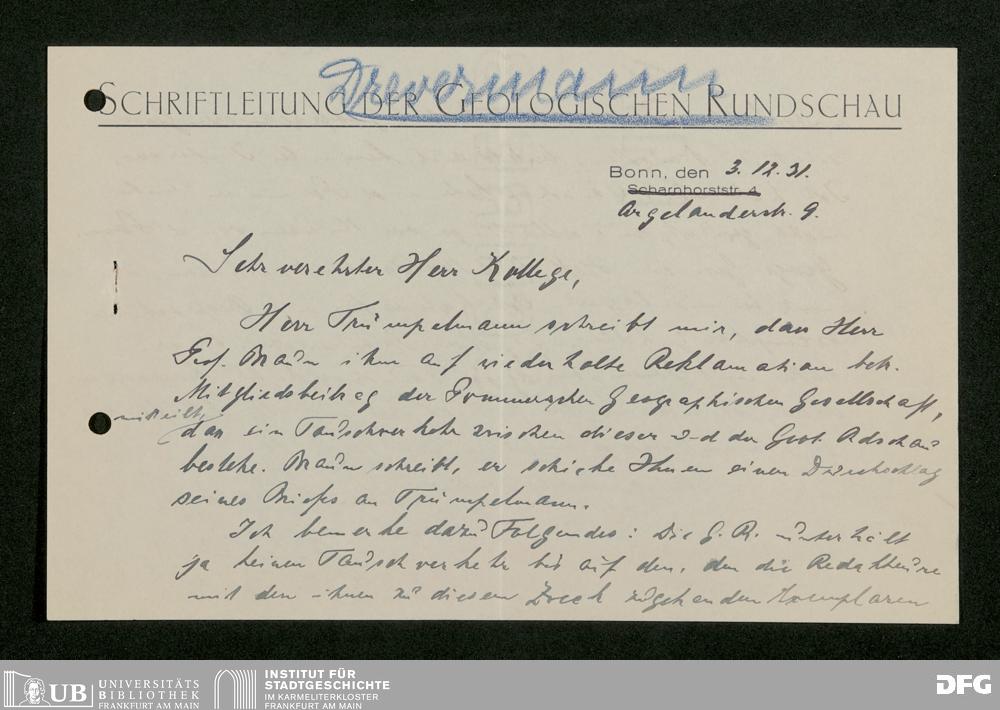 Drevermann
SCHRIFTLEITUNG DER GEOLOGISCHEN RUNDSCHAU
Bonn, den 3. 12. 31.
Scharnhorststr. 4
Argelanderstr. 9.
Sehr verehrter Herr Kollege,
Herr Trümpelmann schreibt mir, dass Herr
Prof. Braun ihm auf wiederholte Reklamation betr.
Mitgliedsbeitrag der Pommerschen Geographischen Gesellschaft,
mitteilt,
dass ein Tauschverkehr zwischen dieser und der Geol. Rdschau
bestehe. Braun schreibt, er schicke Ihnen einen Durchschlag
seines Briefes an Trümpelmann.
Ich bemerke dazu Folgendes: Die G. R. unterhält
ja keinen Tauschverkehr bis auf den, den die Redakteure
mit den ihnen zu diesem Zweck zugehenden Exemplaren
UB UNIVERSITÄTS
BIBLIOTHEK
FRANKFURT AM MAIN
INSTITUT FÜR
STADTGESCHICHTE
IM KARMELITERKLOSTER
FRANKFURT AM MAIN
DFG